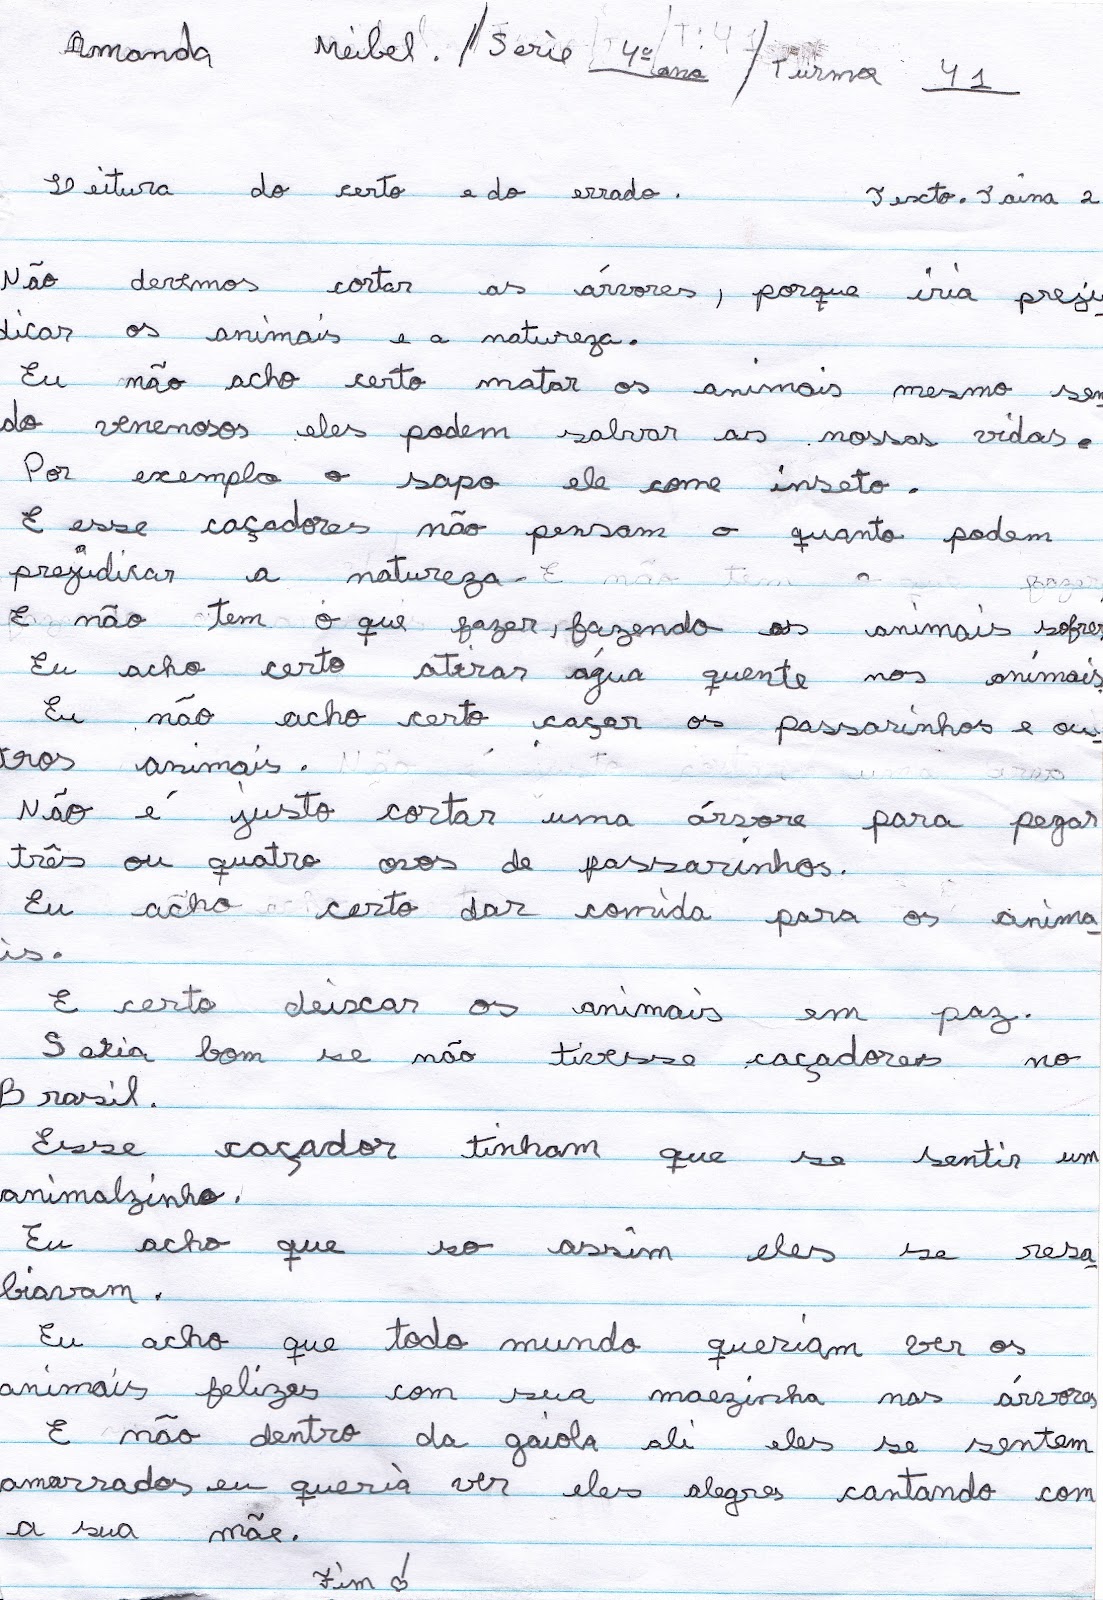 Amanda Meibel. / Serie 4º ano / Turma 41
Leitura do certo e do errado. Texto. Taina 2
Não devemos cortar as árvores, porque iria preju
dicar os animais e a natureza.
Eu não acho certo matar os animais mesmo sen
do venenosos eles podem salvar as nossas vidas.
Por exemplo o sapo ele come inseto.
E esse caçadores não pensam o quanto podem
prejudicar a natureza. E não tem o que fazer,
E não tem o que fazer, fazendo os animais sofrer
Eu acho certo atirar água quente nos animais
Eu não acho certo caçar os passarinhos e ou-
tros animais.
Não é justo cortar uma árvore para pegar
três ou quatro ovos de passarinhos.
Eu acho certo dar comida para os anima-
is.
E certo deixar os animais em paz.
Seria bom se não tivesse caçadores no
Brasil.
Esse caçador tinham que se sentir um
animalzinho.
Eu acho que so assim eles se resa-
biavam.
Eu acho que todo mundo queriam ver os
animais felizes com sua maezinha nas árvores
E não dentro da gaiola ali eles se sentem
amarrados eu queria ver eles alegres cantando com
a sua mãe.
Fim!